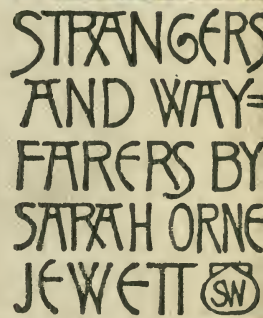 STRANGERS
AND WAY=
FARERS BY
SARAH ORNE
JEWETT SW